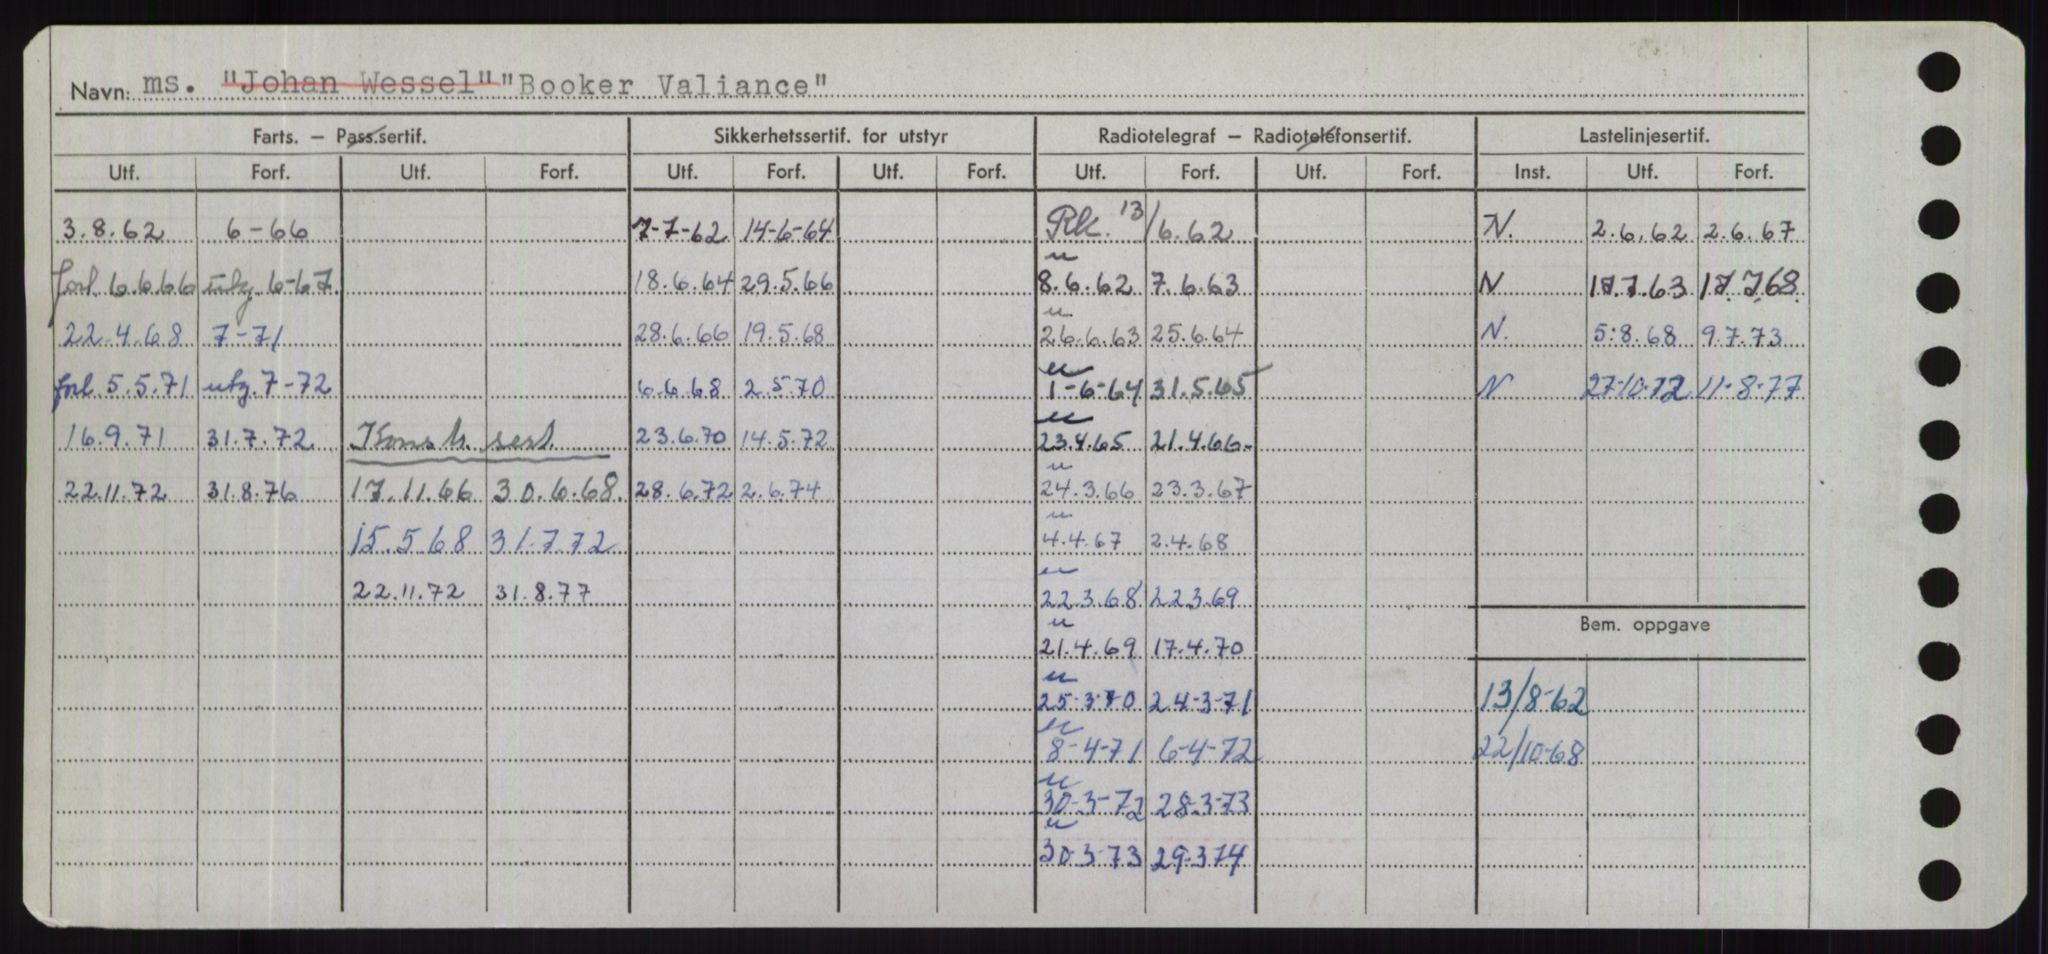 Navn: ms. "Johan Wessel" "Booker Valiance"
Farts. — Pass.sertif. Sikkerhetssertif. for utstyr Radiotelegraf — Radiotelefonsertif. Lastelinjesertif.
Utf. Forf. Utf. Forf. Utf. Forf. Utf. Forf. Utf. Forf. Utf. Forf. Inst. Utf. Forf.
3.8.62 6-66 7-7-62 14-6-64 Rk. 13/6.62 N. 2.6.62 2.6.67
forl. 6.6.66 utg. 6-67. 18.6.64 29.5.66 8.6.62 7.6.63 N 17.7.63 17.7.68.
22.4.68 7-71 28.6.66 19.5.68 26.6.63 25.6.64 N. 5.8.68 9.7.73
forl. 5.5.71 utg. 7-72 6.6.68 2.5.70 1-6-64 31.5.65 N 27-10-72 11-8-77
16.9.71 31.7.72 Konstr. sert. 23.6.70 14.5.72 23.4.65 21.4.66-
22.11.72 31.8.76 17.11.66 30.6.68. 28.6.72 2.6.74 24.3.66 23.3.67
15.5.68 31.7.72 4.4.67 2.4.68
22.11.72 31.8.77 22.3.68 22.3.69
Bem. oppgave
21.4.69 17.4.70
25-3-70 24-3-71 13/8-62
8-4-71 6-4-72 22/10-68
30-3-72 28-3-73
30-3-73 29-3-74